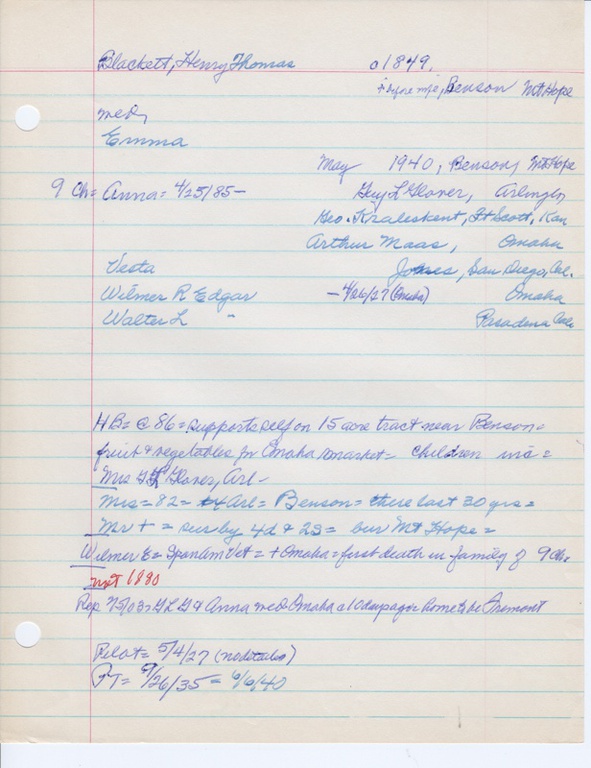 Blackett, Henry Thomas 01849,
Benson Mt Hope
med,
Emma
May 1940, Benson, Mt Hope
9 Ch = Anna = 4/25/85 - Guy L Glover, Arlington
Geo. Ft Scott, Kan
Arthur Maas, Omaha
Vesta Jones, San Diego, Cal.
Wilmer R Edgar - 4/26/27 (Omaha) Omaha
Walter L - Pasadena Cal
HB = @ 86 = supports self on 15 acre tract near Benson =
fruit & vegetables for Omaha market - children inc =
Mrs G L Glover, Arl -
Mrs = 82 = Arl = Benson = there last 30 yrs =
Mr + = sur by 4d & 2s = bur Mt Hope =
Wilmer E = SpanAm Vet = + Omaha = first death in family of 9 Ch
not 1880
Rep G L G & Anna med Omaha 10 days ago home to be Fremont
Pilot = 5/4/27 (no details)
PT = 9/26/35 = 6/6/40